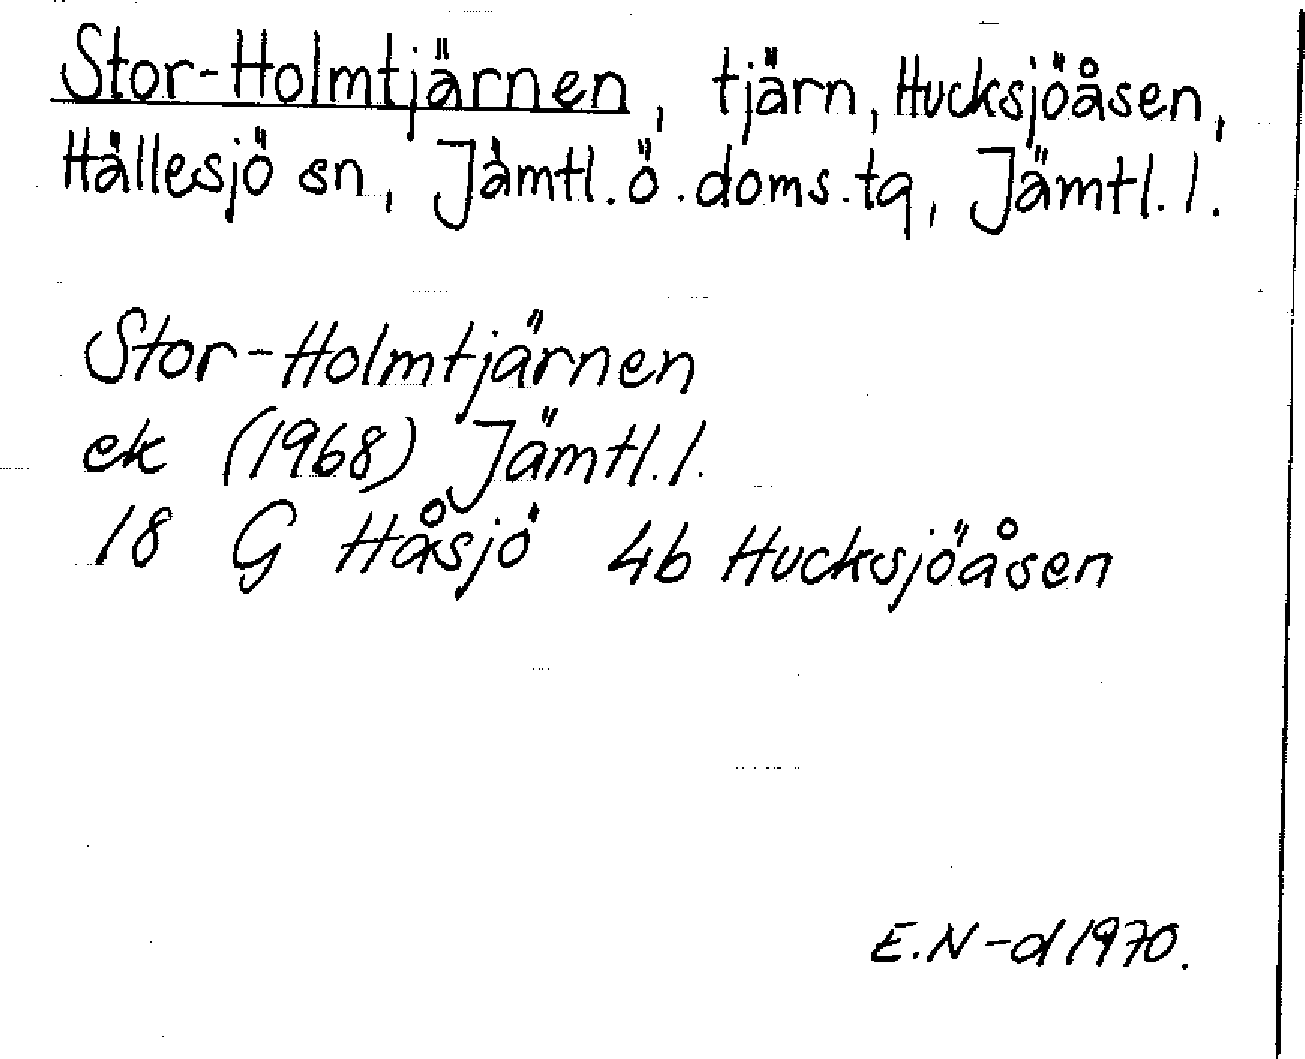 Stor-Holmtjärnen, tjärn, Hucksjöåsen,
Hällesjö sn, Jämtl.ö.doms.tg, Jämtl.l.
Stor-Holmtjärnen
ek (1968) Jämtl.l.
18 G Håsjö 4b Hucksjöåsen
E.N-d 1970.